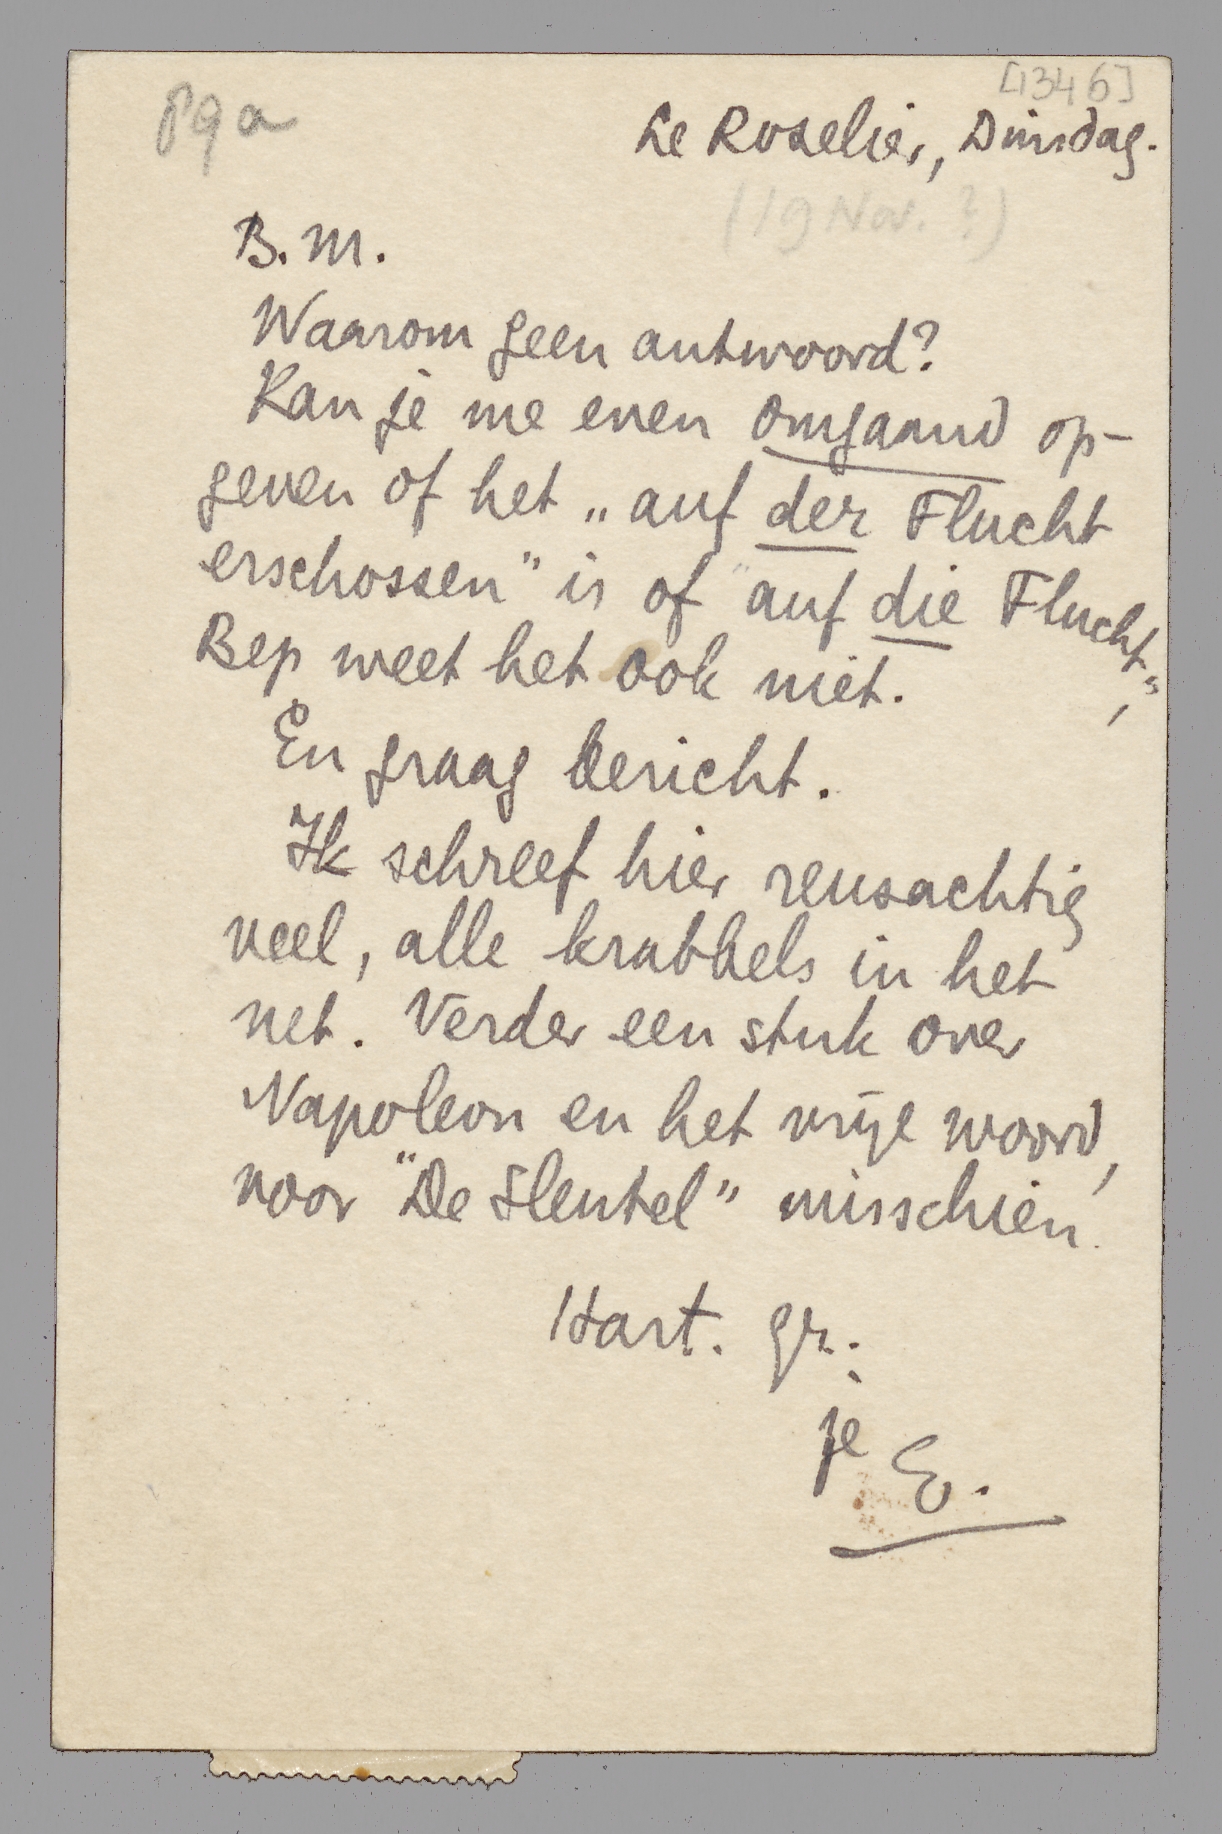 [1346]
89a
Le Roselier, Dinsdag.
(19 Nov. ?)
B. M.
Waarom geen antwoord?
Kan je me even omgaand op-
geven of het „auf der Flucht
erschossen" is of "auf die Flucht",
Bep weet het ook niet.
En graag bericht.
Ik schreef hier reusachtig
veel, alle krabbels in het
net. Verder een stuk over
Napoleon en het vrije woord,
voor "De Sleutel" misschien.
Hart. gr.
je E.